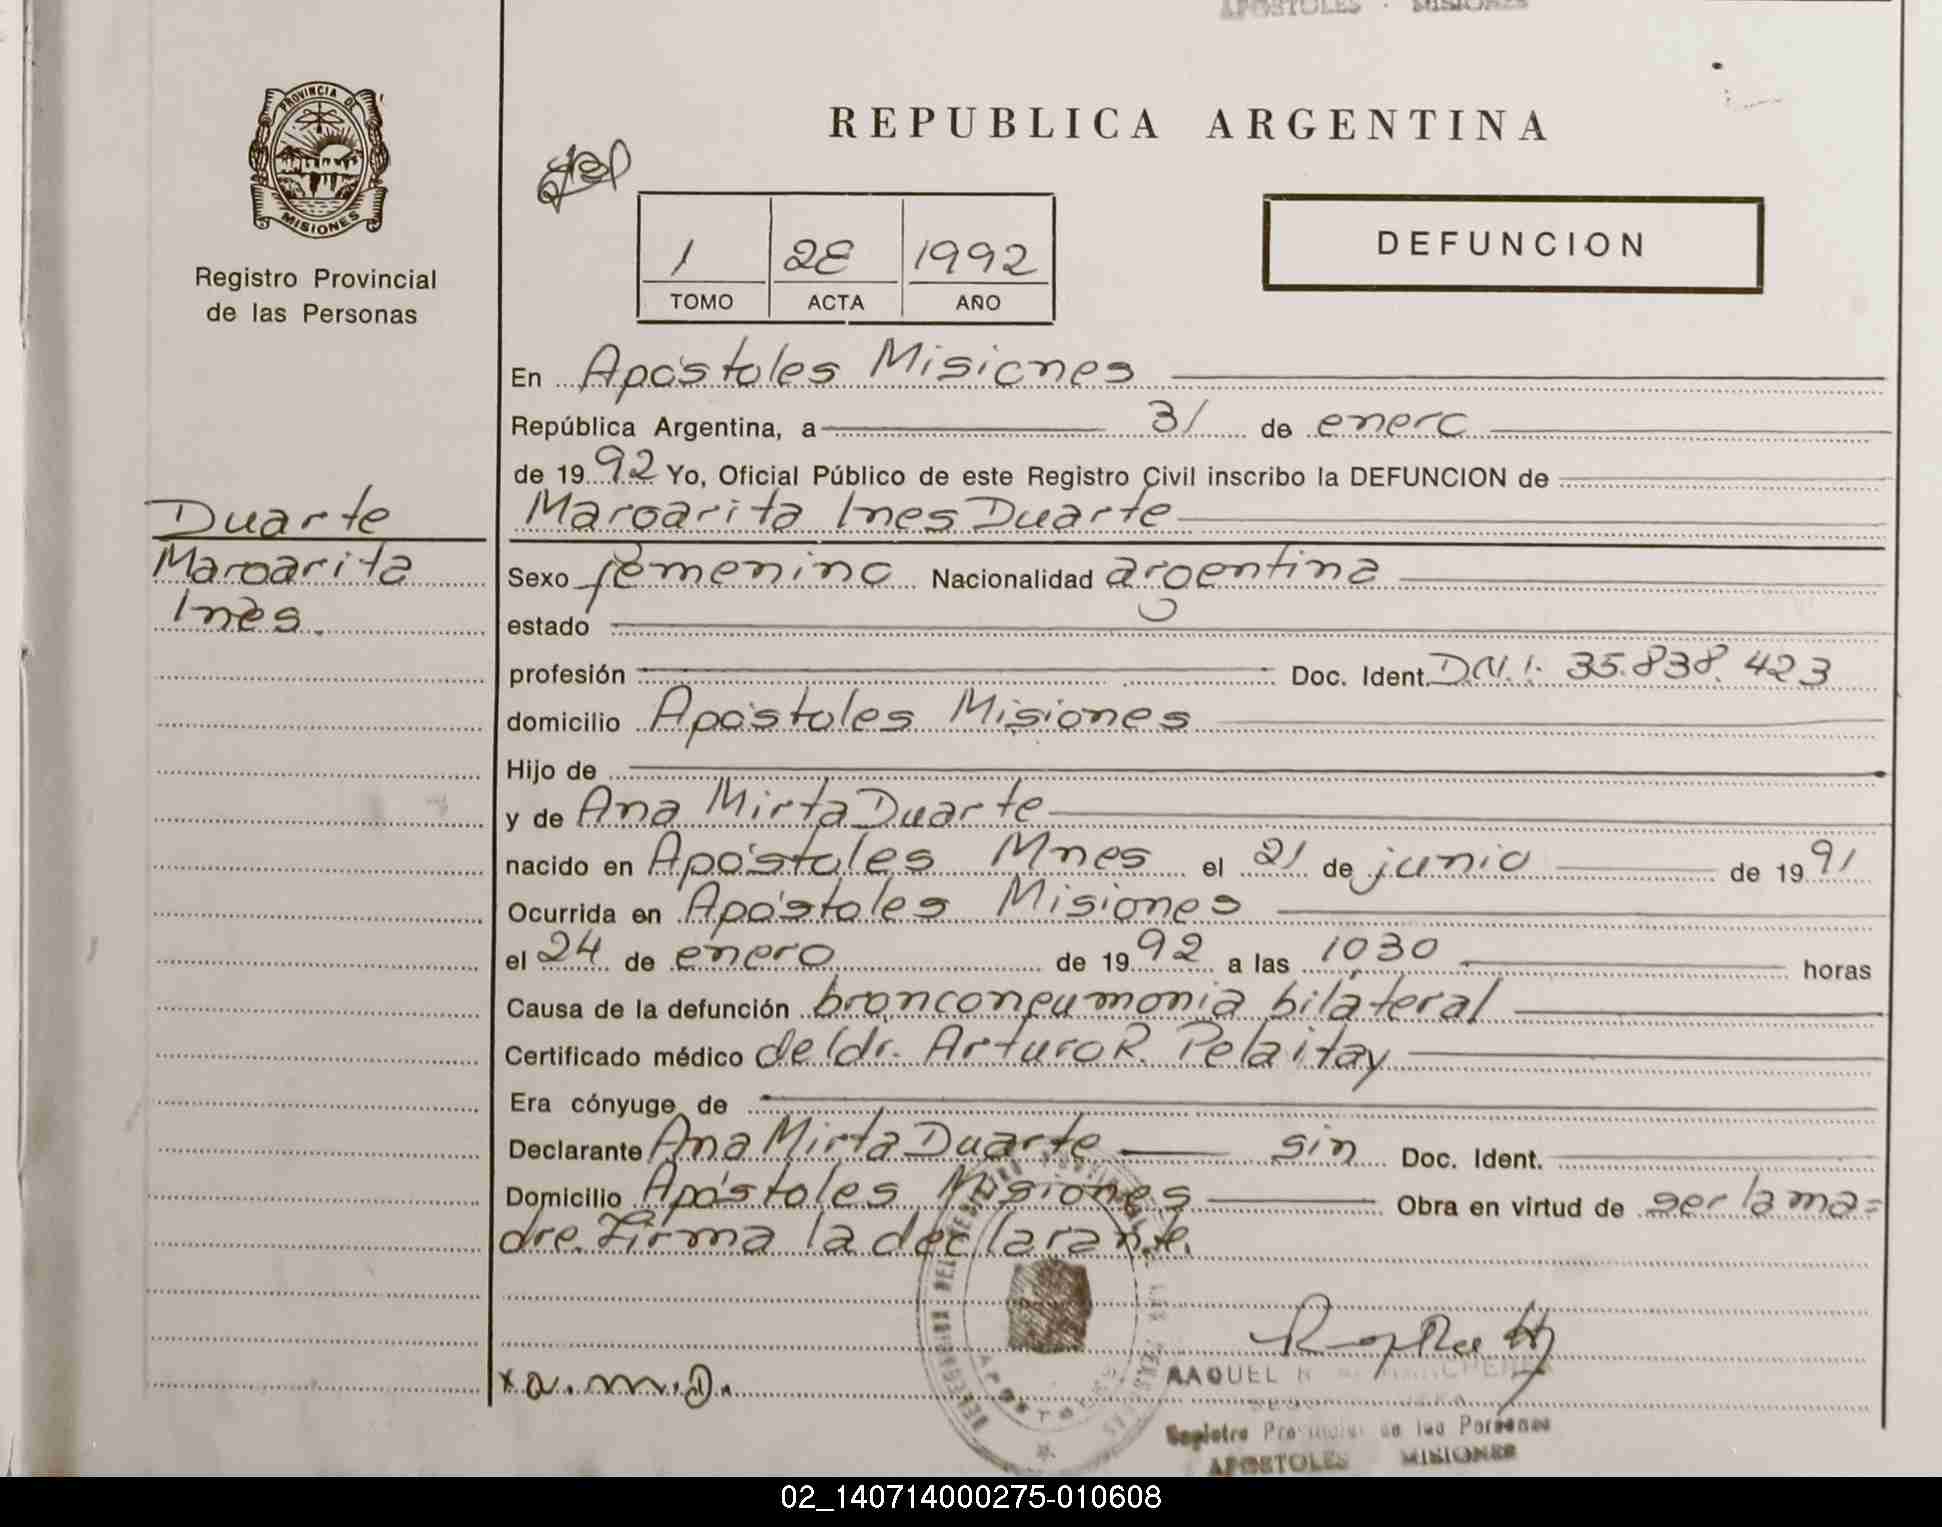 APOSTOLES - MISIONES
PROVINCIA DE
MISIONES
Registro Provincial
de las Personas
REPUBLICA ARGENTINA
1 28 1992
TOMO ACTA AÑO
DEFUNCION
En Apóstoles Misiones
República Argentina, a 31 de enero
de 1992 Yo, Oficial Público de este Registro Civil inscribo la DEFUNCION de
Duarte
Margarita Ines Duarte
Margarita
Inès.
Sexo femenino Nacionalidad argentina
estado
profesión Doc. Ident. D.N.I: 35.838.423
domicilio Apóstoles Misiones
Hijo de
y de Ana Mirta Duarte
nacido en Apóstoles Mnes el 21 de junio de 1991
Ocurrida en Apóstoles Misiones
el 24 de enero de 1992 a las 1030 horas
Causa de la defunción bronconeumonia bilateral
Certificado médico del dr. Arturo R. Pelaitay
Era cónyuge de
Declarante Ana Mirta Duarte sin Doc. Ident.
Domicilio Apóstoles Misiones Obra en virtud de ser la ma=
dre. Firma la declarante.
x a.m.D.
RAQUEL
Registro Provincial de las Personas
APOSTOLES MISIONES
02_140714000275-010608